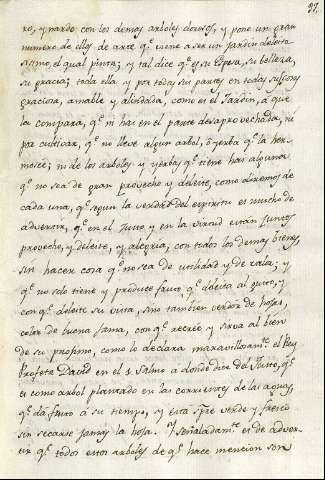 97.
ro, y nardo con los demas arboles olorosos, y pone un gran
numero de ellos de arte q.e viene a ser un jardin deleita-
sissimo, el qual pinta; y tal dice q.e es su Esposa, su belleza,
su gracia; toda ella y por todas sus partes en todas sus
graciosa, amable y alindada, como es el Jardin, á que
la compara, q.e ni hai en el parte desaprovechada, ni
por cultivar, q.e no lleve algun arbol, ó yerba q.e la her-
mosée; ni de los arboles y yerbas q.e tiene hai alguna
q.e no sea de gran provecho y deleite, como diremos de
cada una, q.e segun la verdad del espiritu es mucho de
advertir, q.e en el Justo y en la virtud estan juntos
provecho, y deleite, y alegria, con todos los demas bienes,
sin hacer cosa q.e no sea de utilidad y de valia; y
q.e no solo tiene y produce fruto q.e deleita al gusto, y
con q.e deleite su vista, sino tambien verdor de hojas,
olor de buena fama, con q.e recrée y sirva al bien
de su proximo, como lo declara maravillosam.te el Rey
Profeta David en el 1 Salmo a donde dice del Justo, q.e
es como arbol plantado en las corrientes de las aguas,
q.e dá fruto á su tiempo, y está sp̃re verde y fresco
sin secarse jamas la hoja. Y señaladam.te es de adver-
tir q.e todos estos arboles de q.e hace mencion son